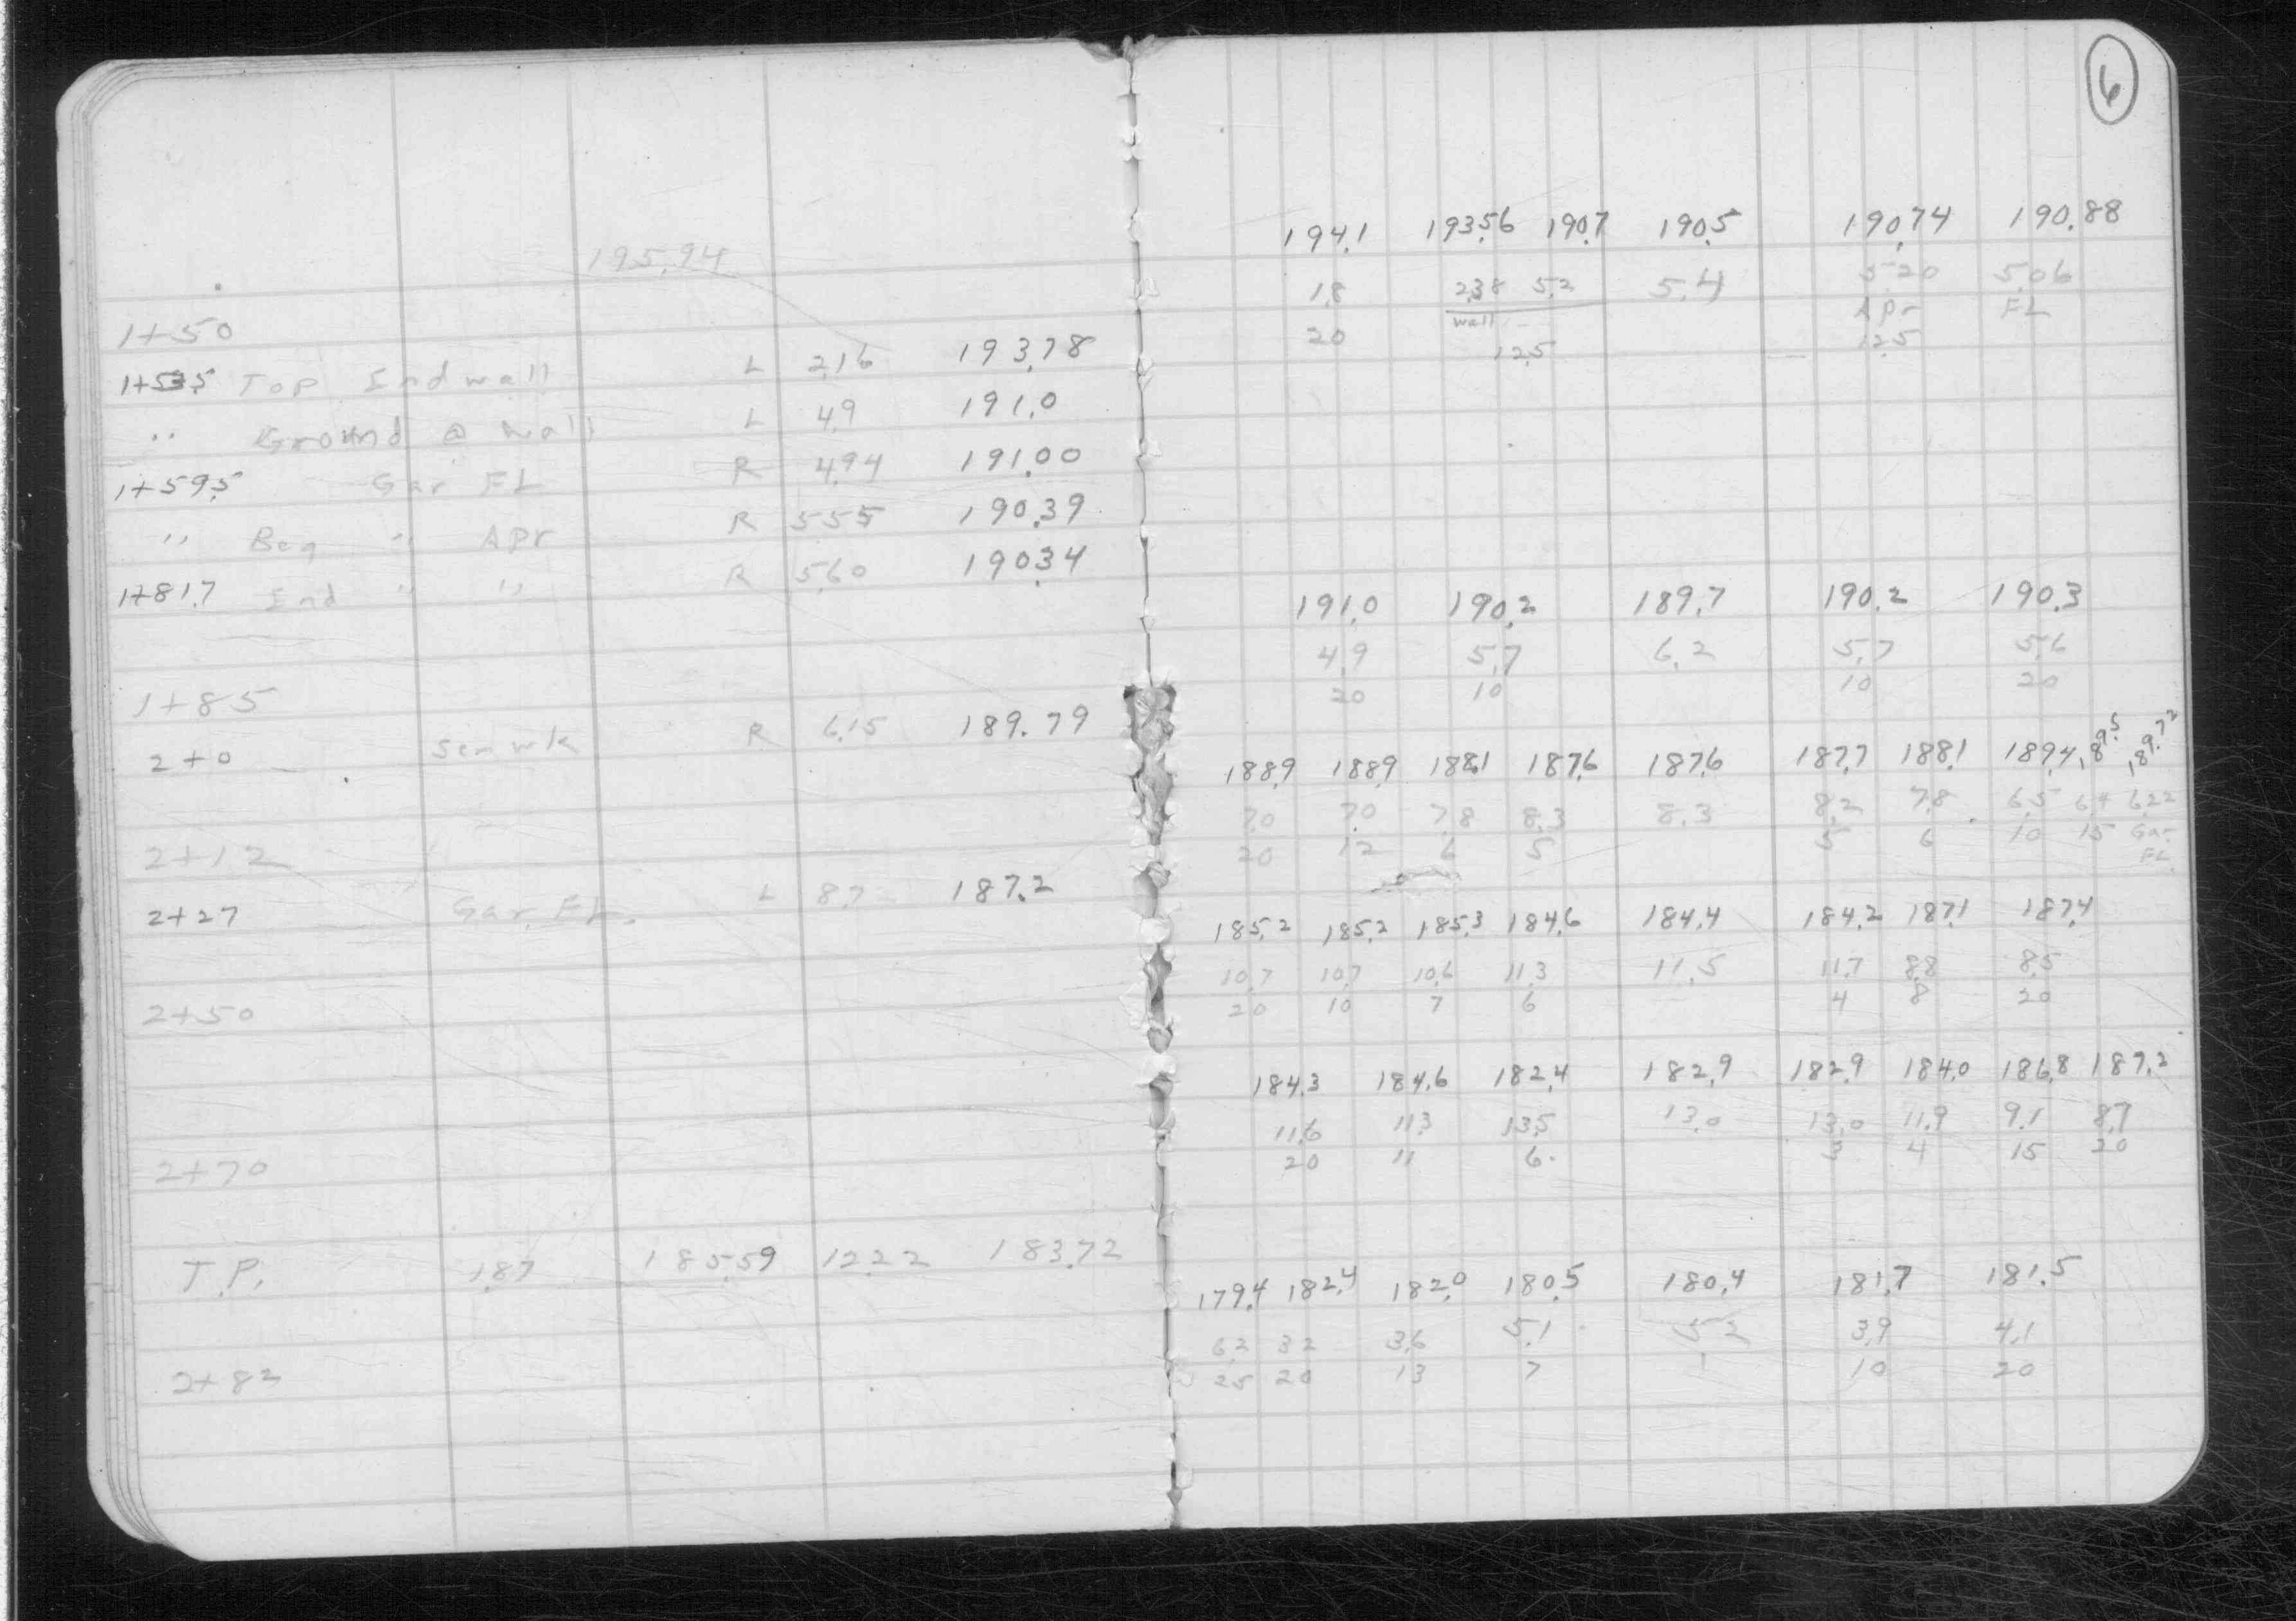 195.94
1+50
1+53.5 Top End wall L 2.16 193.78
" Ground @ wall L 4.9 191.0
1+59.5 Gar FL R 4.94 191.00
" Beg " Apr R 5.55 190.39
1+81.7 End " " R 5.60 190.34
1+85
2+0 Sem wk R 6.15 189.79
2+12
2+27 Gar. FL. L 8.7 187.2
2+50
2+70
T.P. 1.87 185.59 12.22 183.72
2+82
6
194.1 193.56 190.7 190.5 190.74 190.88
1.8 2.38 5.2 5.4 5.20 5.06
wall Apr FL
20 12.5 12.5
191.0 190.2 189.7 190.2 190.3
4.9 5.7 6.2 5.7 5.6
20 10 10 20
188.9 188.9 188.1 187.6 187.6 187.7 188.1 189.4 189.5 189.72
7.0 7.0 7.8 8.3 8.3 8.2 7.8 6.5 6.4 6.22
20 12 6 5 5 6 10 15 Gar
FL
185.2 185.2 185.3 184.6 184.4 184.2 187.1 187.4
10.7 10.7 10.6 11.3 11.5 11.7 8.8 8.5
20 10 7 6 4 8 20
184.3 184.6 182.4 182.9 182.9 184.0 186.8 187.2
11.6 11.3 13.5 13.0 13.0 11.9 9.1 8.7
20 11 6 3 4 15 20
179.4 182.4 182.0 180.5 180.4 181.7 181.5
6.2 3.2 3.6 5.1 5.2 3.9 4.1
25 20 13 7 10 20